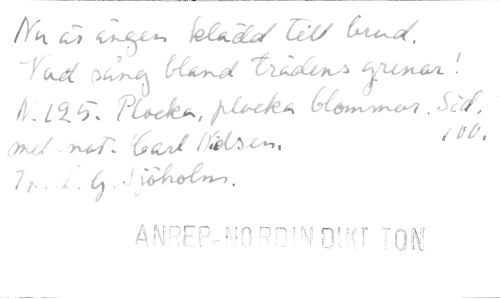 Nu äs ängen klädd till brud.
Vad sång bland trädens grenar!
N. 125. Plocka, plocka blommor. Sid. 100.
med not. Carl Nidsen.
Tr. L. G. Sjöholm.
ANREP-NORDIN DIKT TON